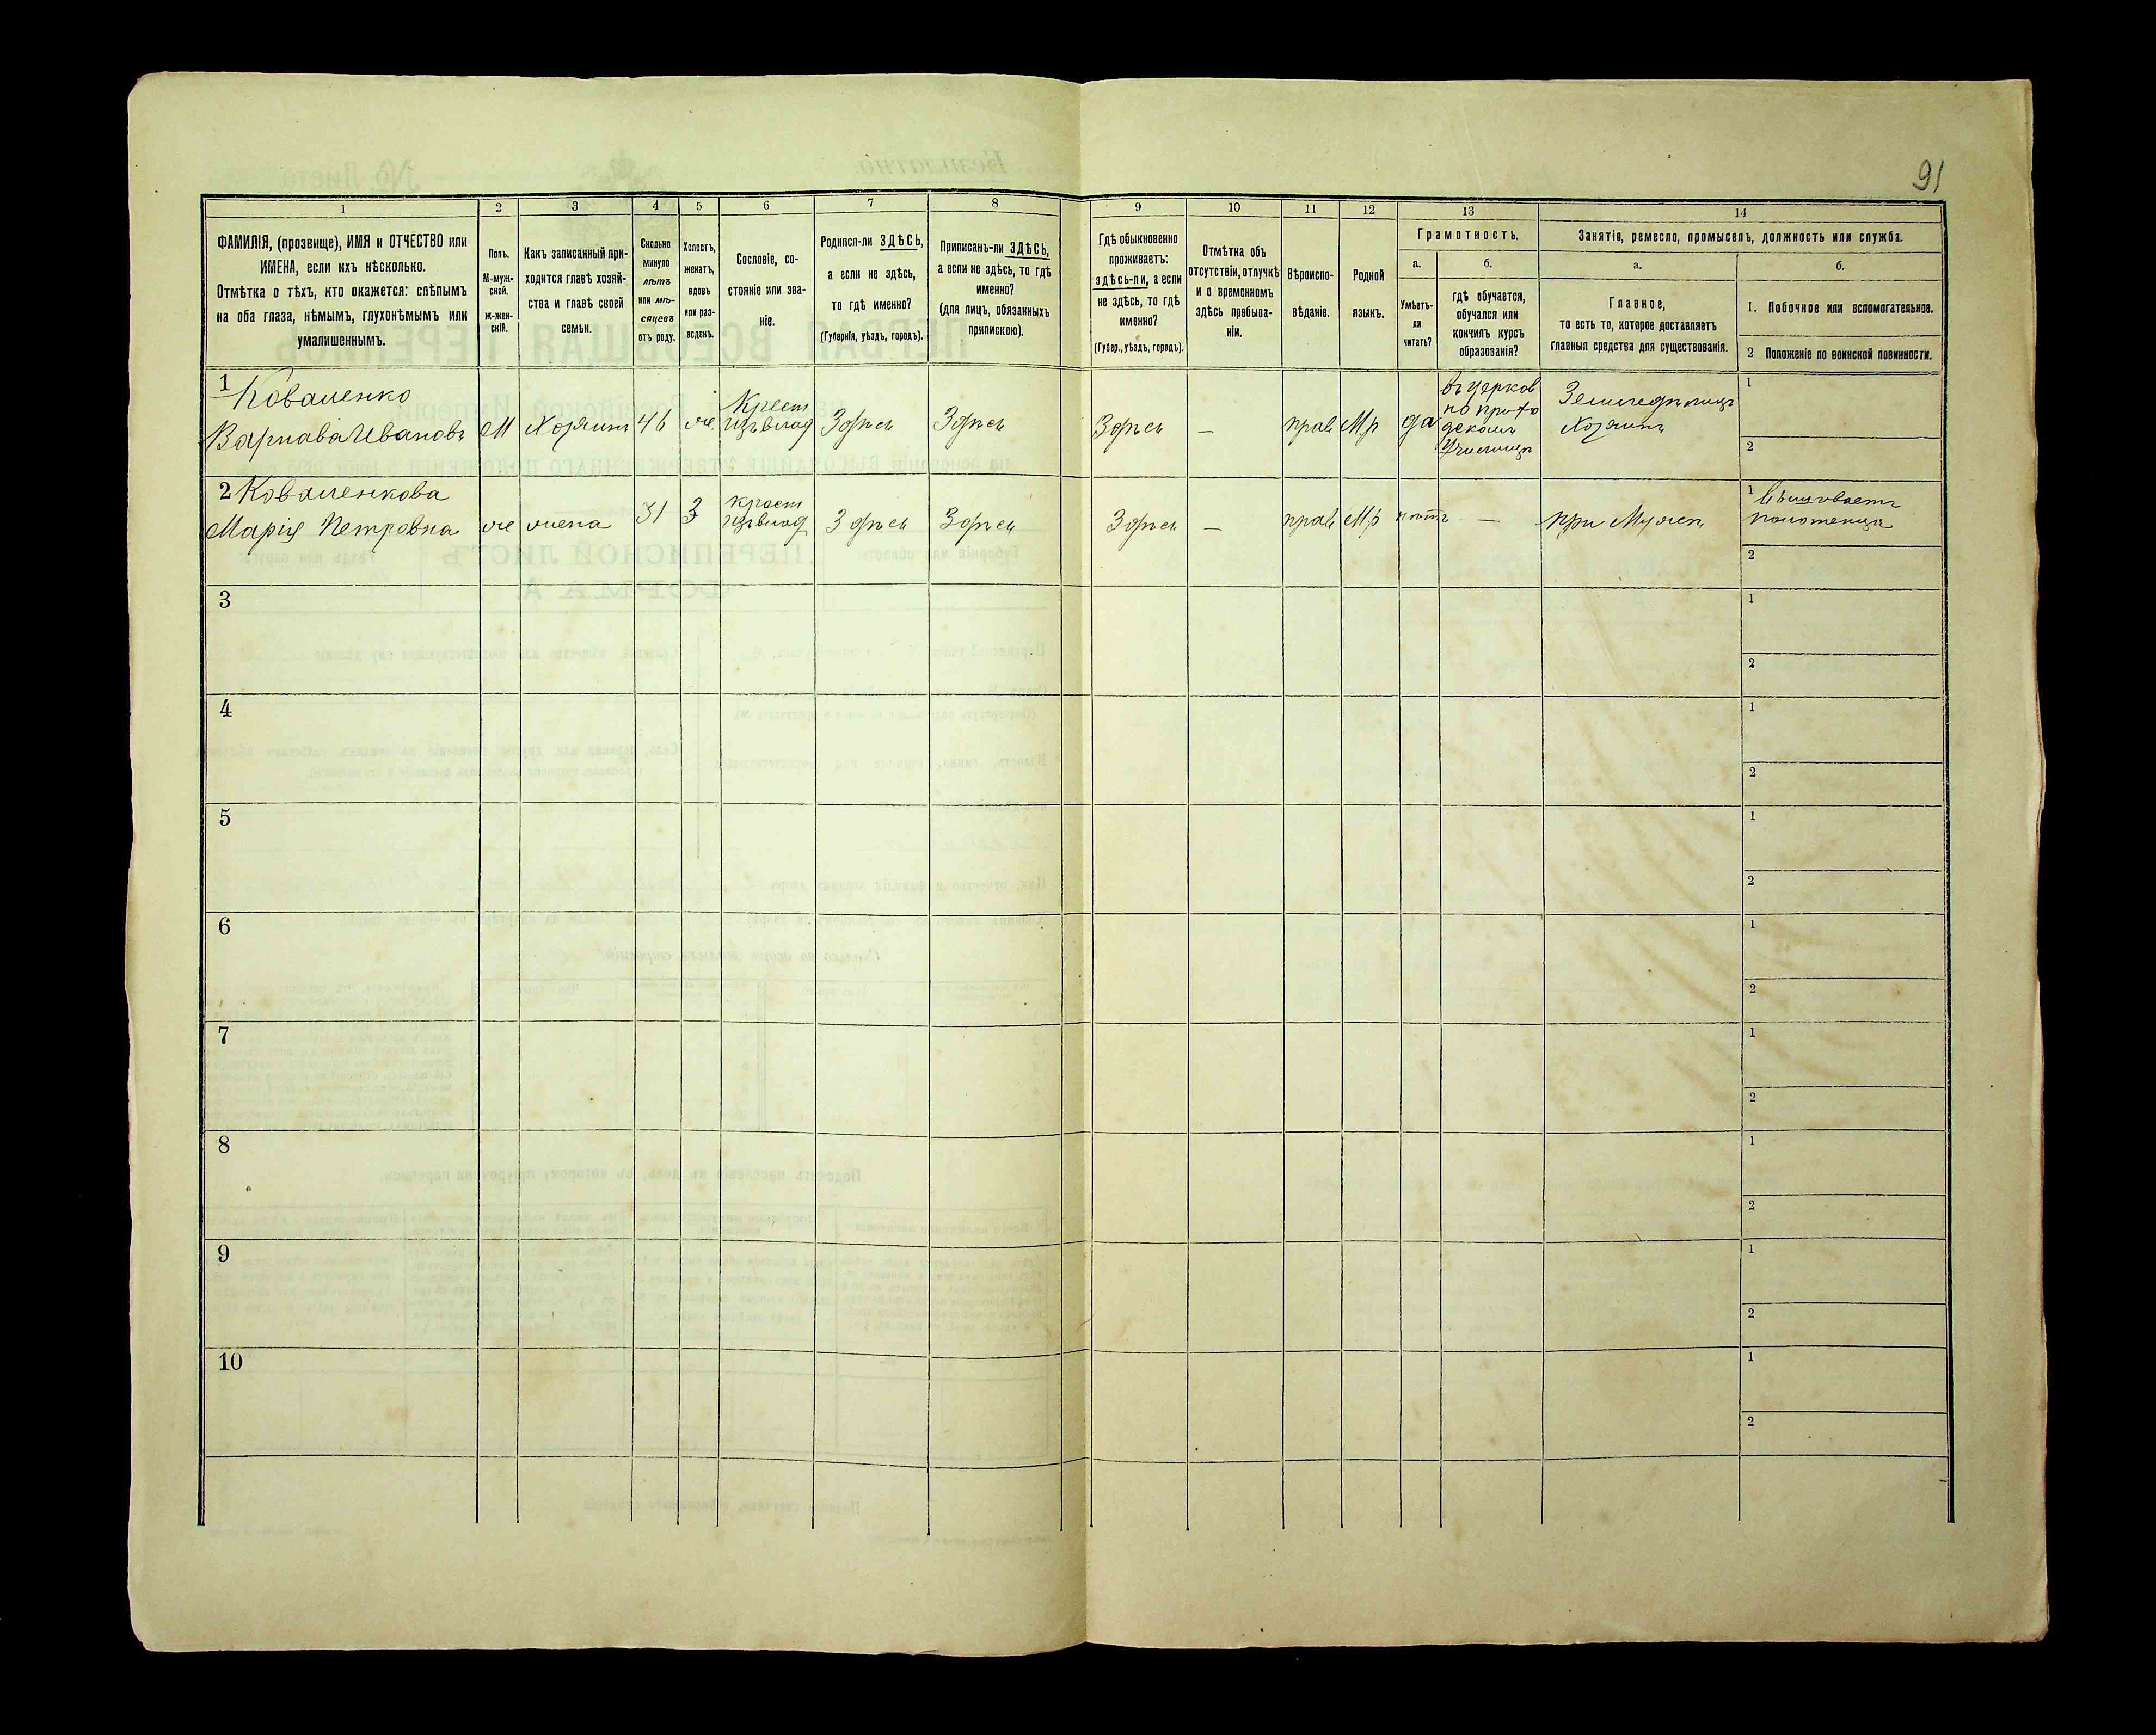 91
1
2
3
4
5
6
7
8
9
10
11
12
13
14
ФАМИЛІЯ, (прозвище), ИМЯ и ОТЧЕСТВО или
ИМЕНА, если ихъ нѣсколько.
Отмѣтка о тѣхъ, кто окажется: слѣпымъ
на оба глаза, нѣмымъ, глухонѣмымъ или
умалишеннымъ.
Полъ.
М-муж-
ской.
ж-жен-
скій.
Какъ записанный при-
ходится главѣ хозяй-
ства и главѣ своей
семьи.
Сколько
минуло
лѣтъ
или мѣ-
сяцевъ
отъ роду.
Холостъ,
женатъ,
вдовъ
или раз-
веденъ.
Сословіе, со-
стояніе или зва-
ніе.
Родился-ли ЗДѢСЬ,
а если не здѣсь,
то гдѣ именно?
(Губернія, уѣздъ, городъ).
Приписанъ-ли ЗДѢСЬ,
а если не здѣсь, то гдѣ
именно?
(для лицъ, обязанныхъ
припискою).
Гдѣ обыкновенно
проживаетъ:
здѣсь-ли, а если
не здѣсь, то гдѣ
именно?
(Губер., уѣздъ, городъ).
Отмѣтка объ
отсутствіи, отлучкѣ
и о временномъ
здѣсь пребыва-
ніи.
Вѣроиспо-
вѣданіе.
Родной
языкъ.
Грамотность.
а.
Умѣетъ-
ли
читать?
б.
гдѣ обучается,
обучался или
кончилъ курсъ
образованія?
Занятія, ремесло, промыселъ, должность или служба.
а.
Главное,
то есть то, которое доставляетъ
главныя средства для существованія.
б.
1. Побочное или вспомогательное.
2 Положеніе по воинской повинности.
1 Коваленко
Варнава Ивановъ
М
Хозяинъ
46
ж
Крест
изъ влад
Здѣсь
Здѣсь
Здѣсь
—
прав
Мр
да
въ церков
но прихо
дском
Училищѣ
Земледѣлецъ
Хозяинъ
1
2
2 Коваленкова
Марія Петровна
ж
жена
31
З
крест
изъ влад
Здѣсь
Здѣсь
Здѣсь
—
прав
Мр
нѣтъ
—
при Мужѣ
1 Вышиваетъ
полотенца
2
3
1
2
4
1
2
5
1
2
6
1
2
7
1
2
8
1
2
9
1
2
10
1
2